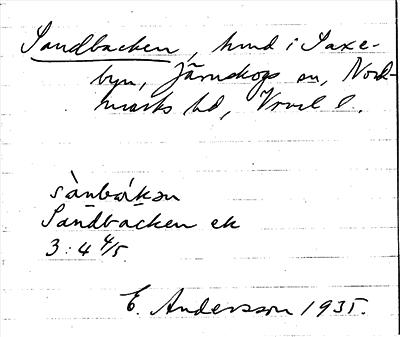 Sandbacken, hmd i Saxe-
byn, Järnskogs sn, Nord-
marks hd, Vrml l.
sànbàkən
Sandbacken ek
3:4 4/5
E. Andersson 1935.